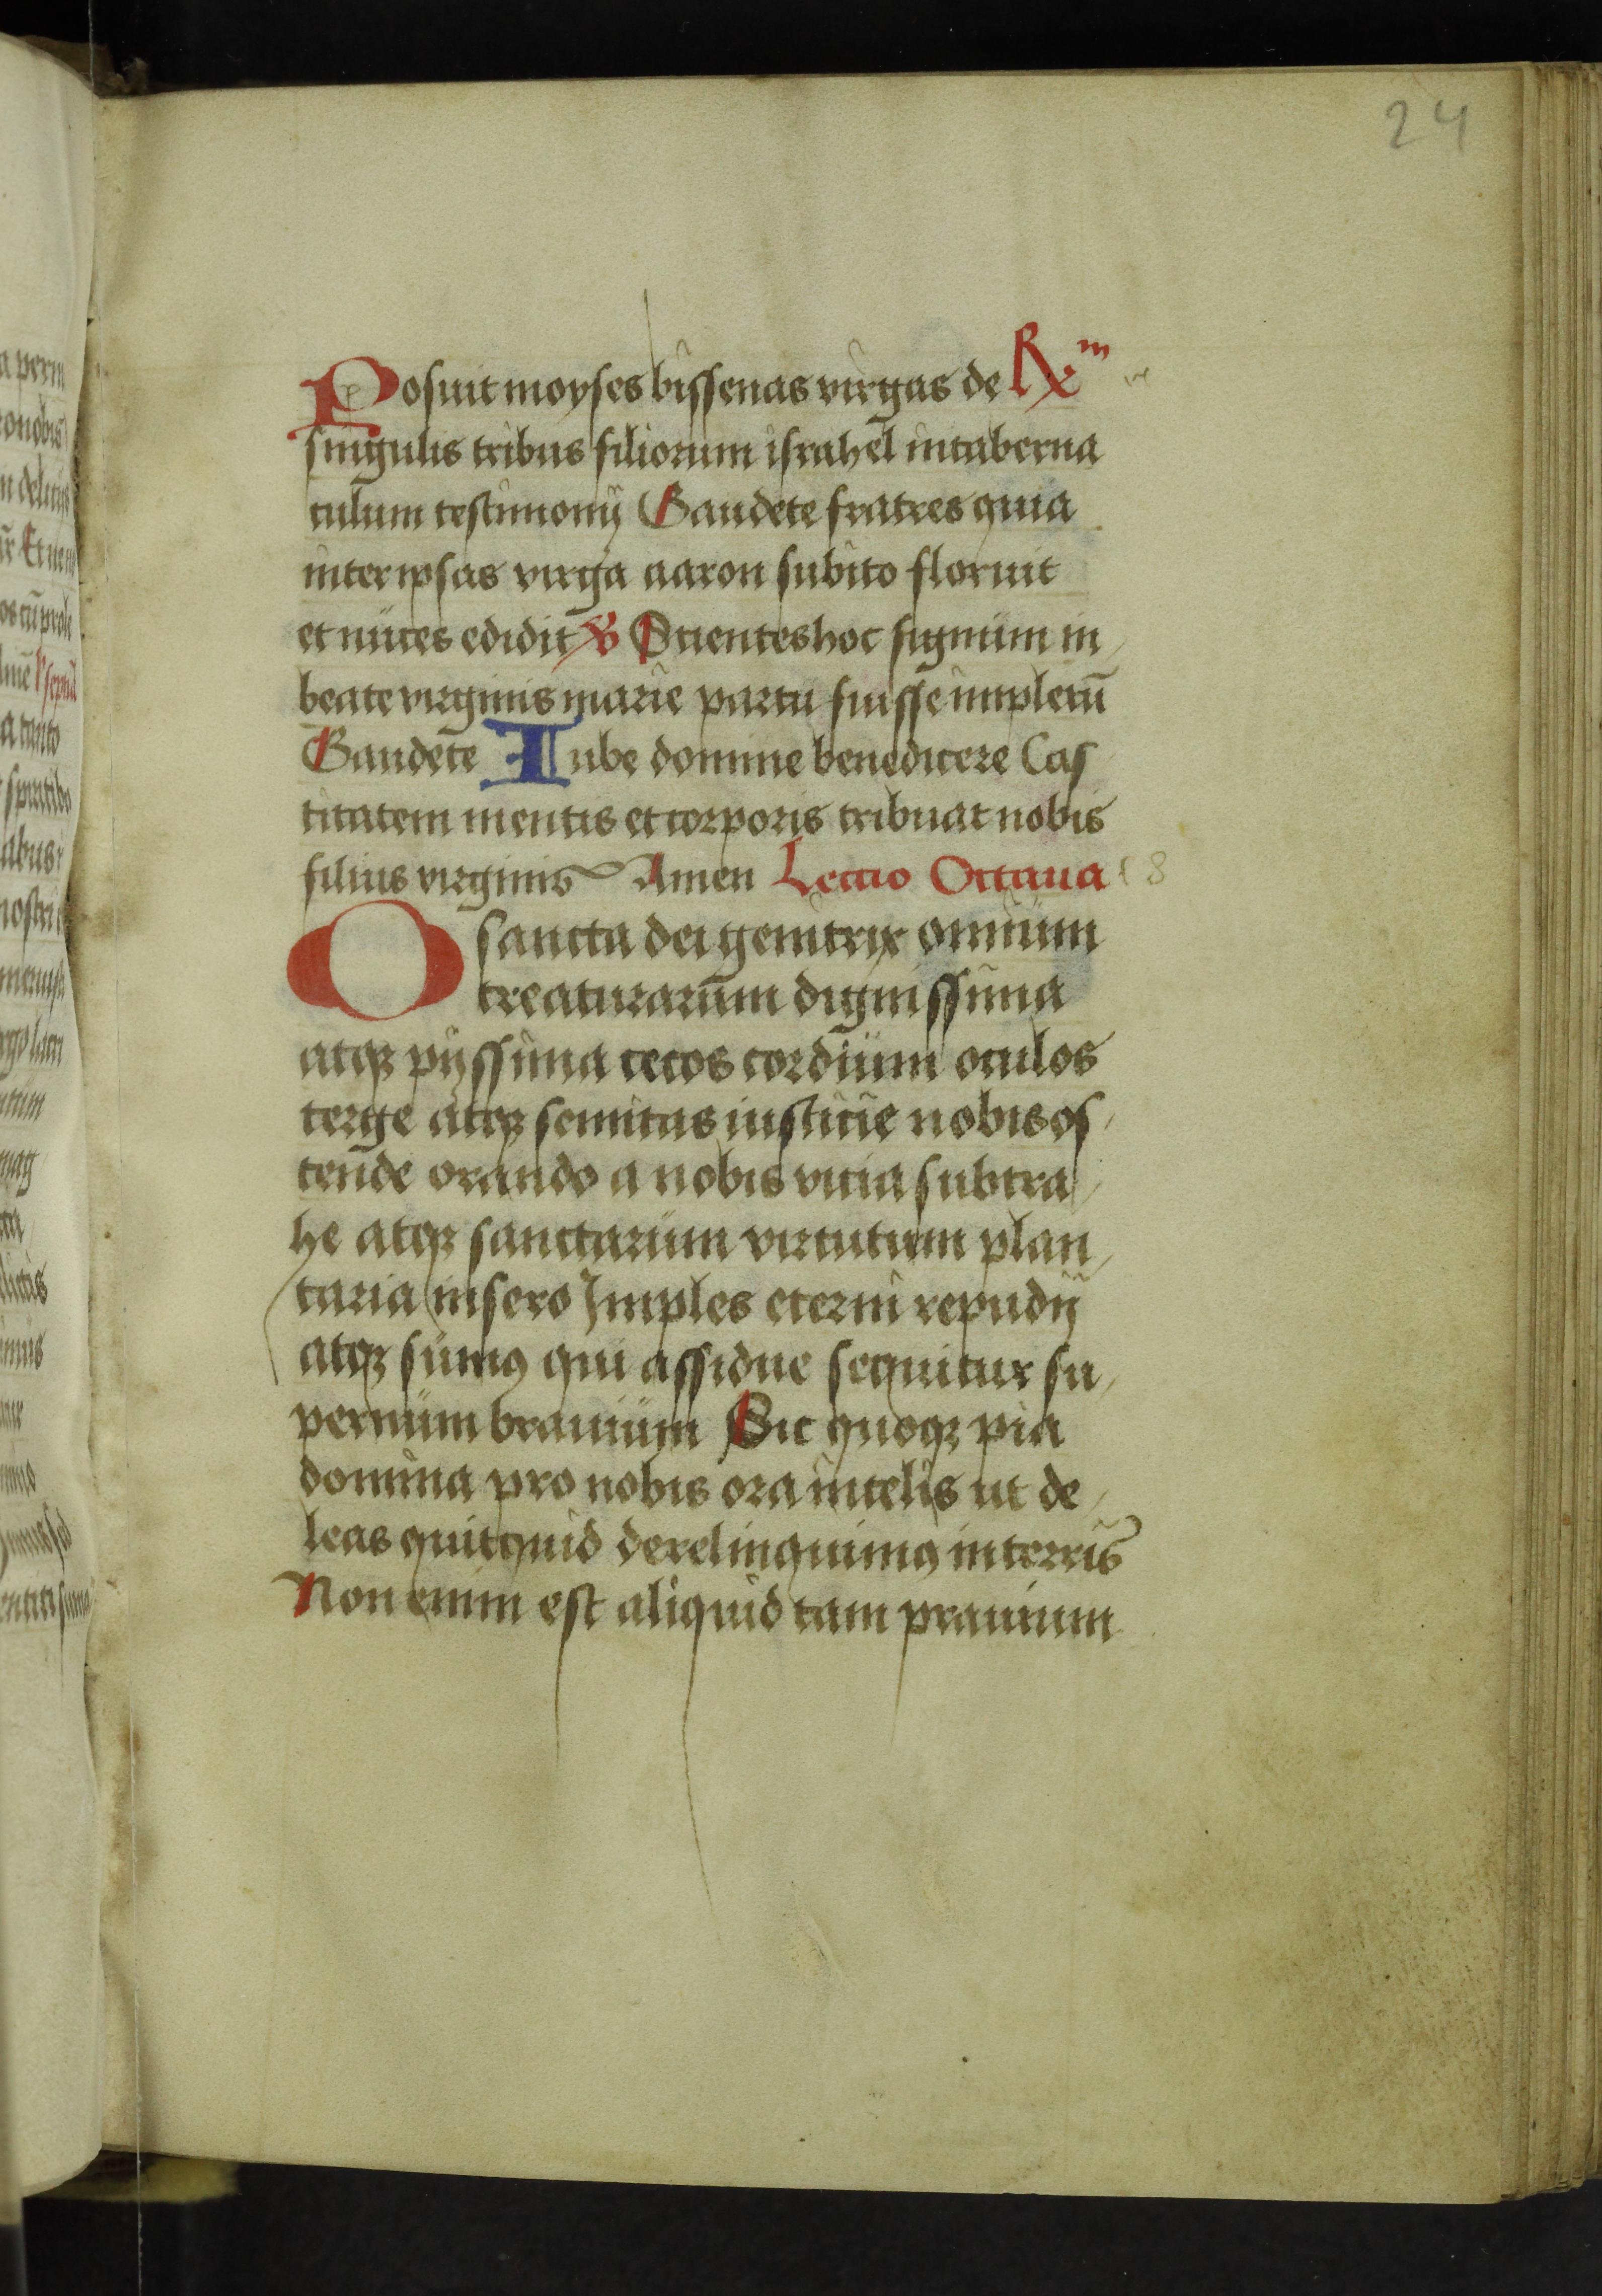 24
Posuit moyses bissenas virgas de R̷m
singulis tribus filiorum israhel intaberna
culum testimonij Gaudete fratres quia
inter ipsas virga aaron subito floruit
et nuces edidit ℣ Scientes hoc signum in
beate virginis marie partu fuisse impletū
Gaudete Iube domine benedicere Cas
titatem mentis et corporis tribuat nobis
filius virginis Amen Lectio Octaua
O sancta dei genitrix omnium
creaturarum dignissima
atqꝫ pijssima cecos cordium oculos
terge atqꝫ semitas iusticie nobis os
tende orando a nobis vicia subtra
he atqꝫ sanctarum virtutum plan
taria insero Imples eterni repudij
atqꝫ sumꝰ qui assidue sequitur su
pernum brauium Sic quoqꝫ pia
domina pro nobis ora incelis ut de
leas quitquid derelinquimꝰ interris
Non enim est aliquid tam prauium